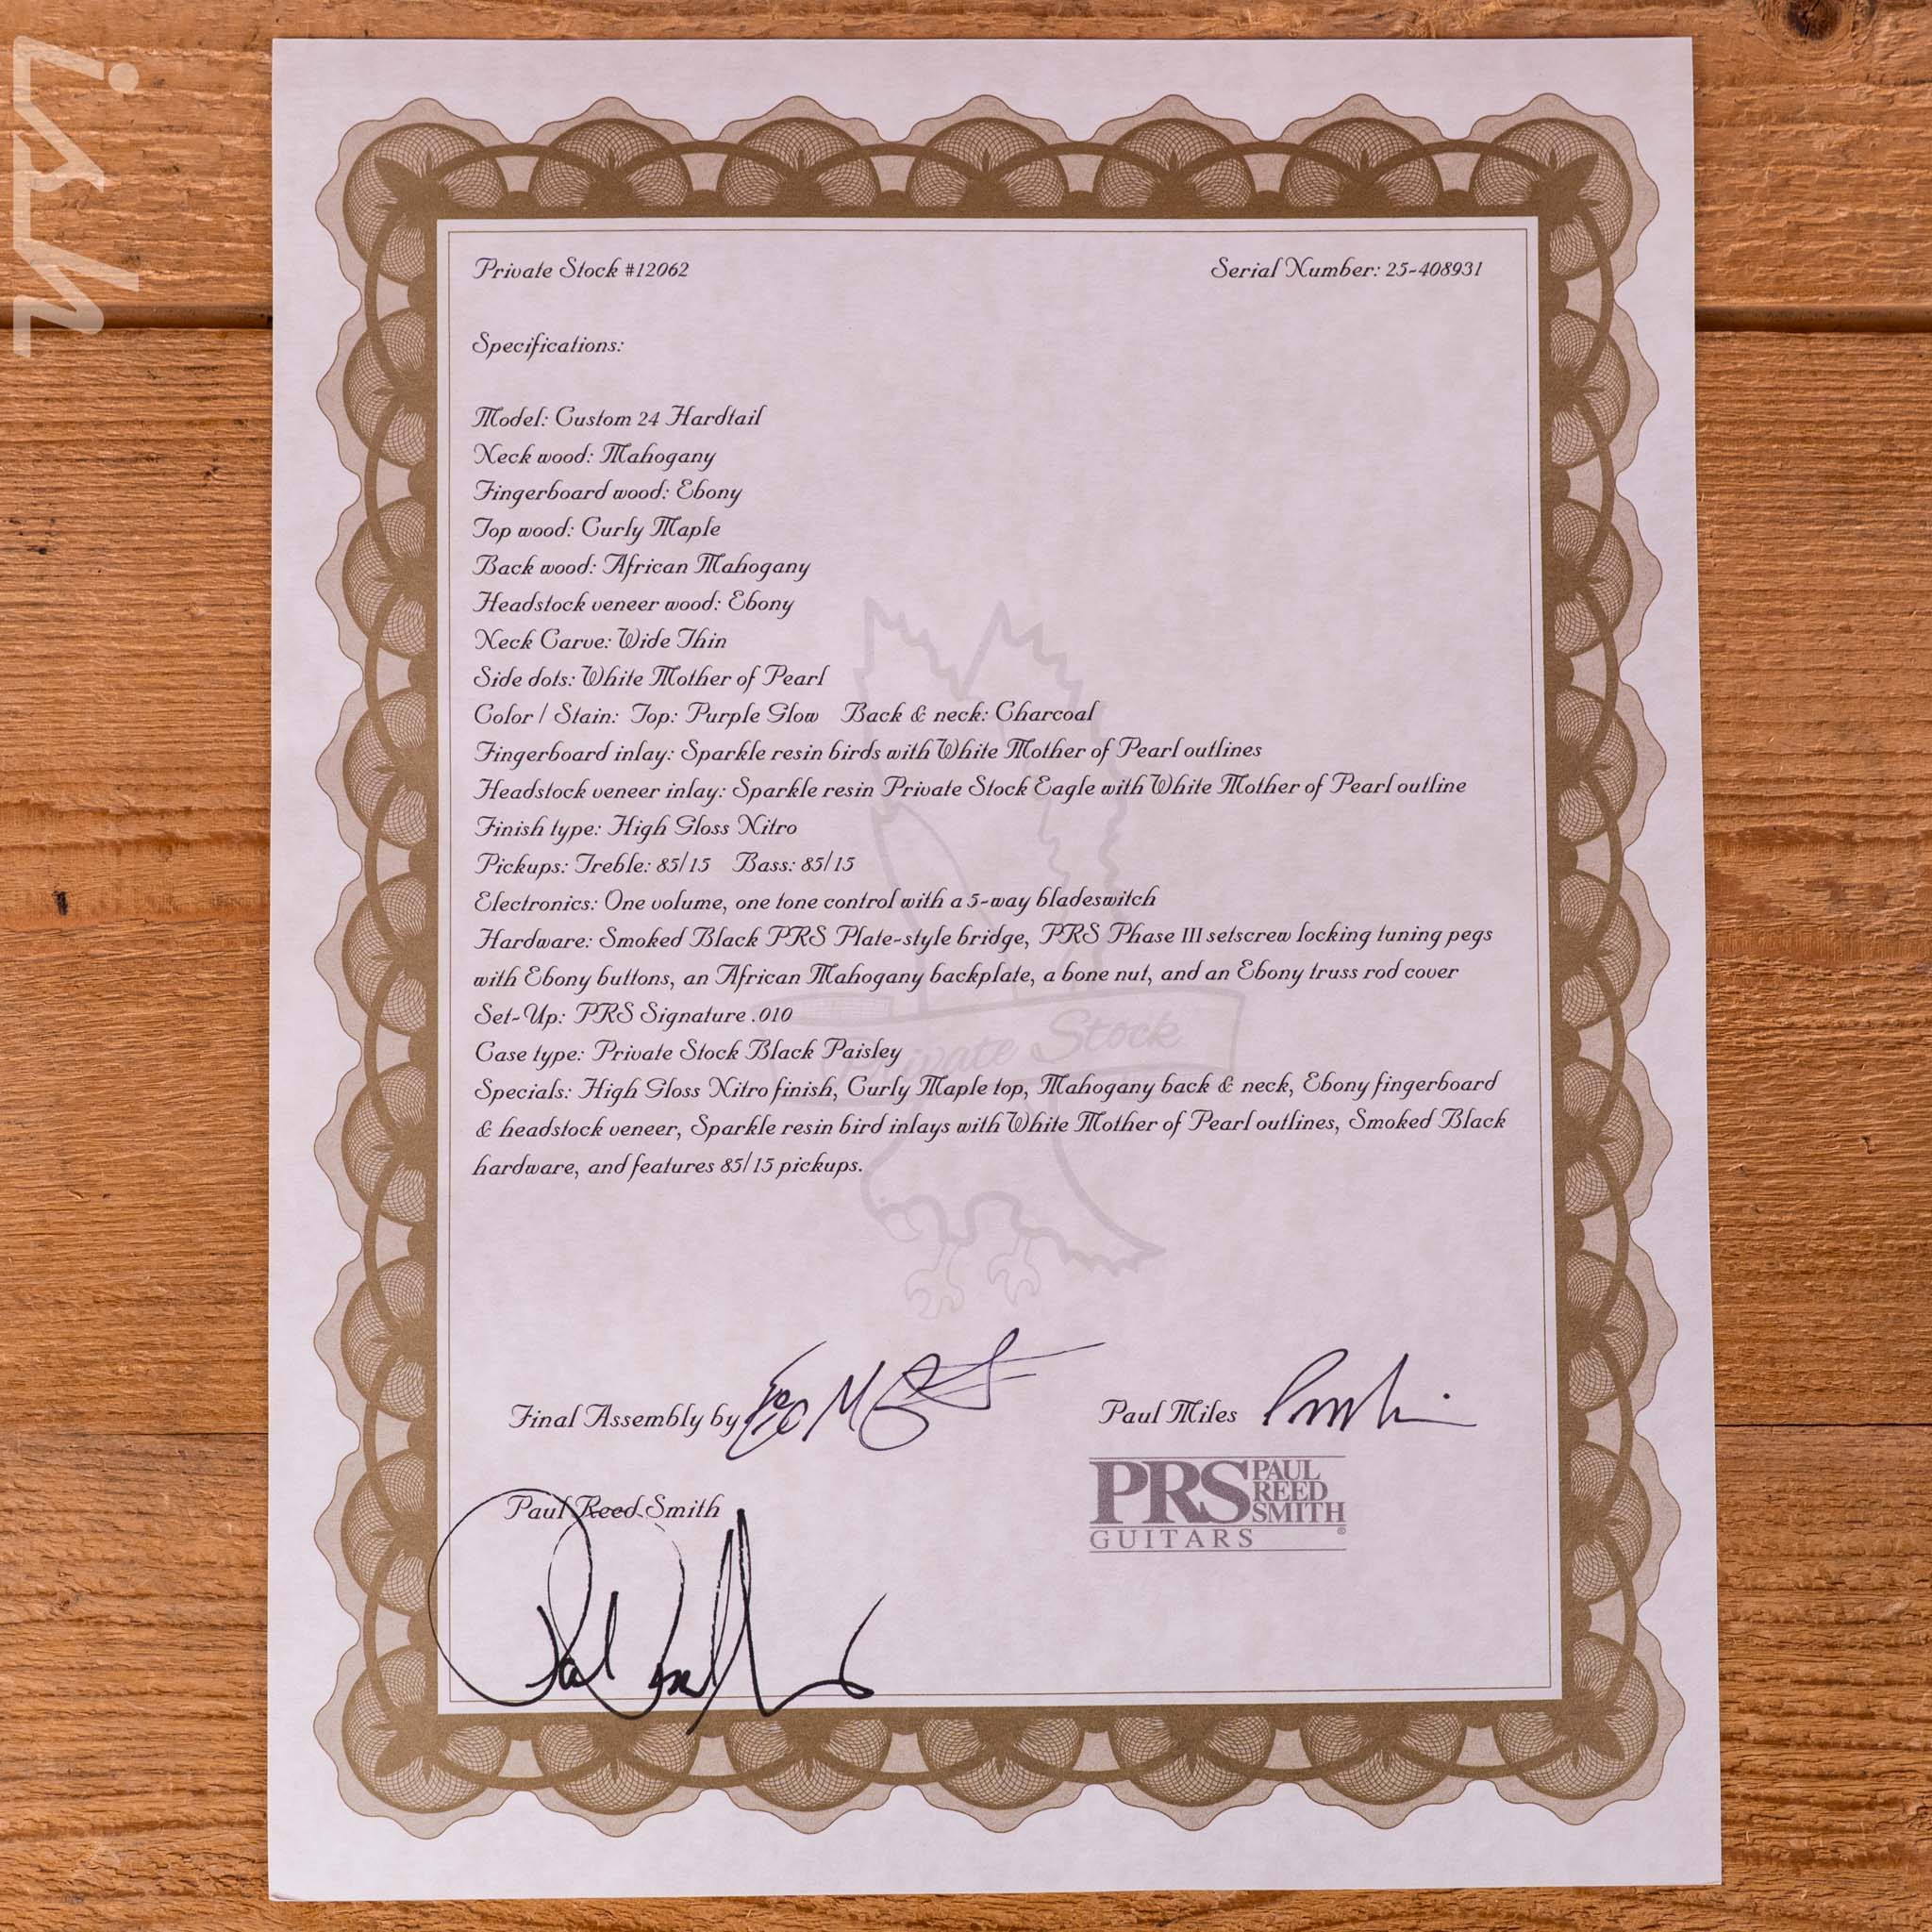 ish
Private Stock #12062
Serial Number: 25-408931
Specifications:
Model: Custom 24 Hardtail
Neck wood: Mahogany
Fingerboard wood: Ebony
Top wood: Curly Maple
Back wood: African Mahogany
Headstock veneer wood: Ebony
Neck Carve: Wide Thin
Side dots: White Mother of Pearl
Color / Stain: Top: Purple Glow Back & neck: Charcoal
Fingerboard inlay: Sparkle resin birds with White Mother of Pearl outlines
Headstock veneer inlay: Sparkle resin Private Stock Eagle with White Mother of Pearl outline
Finish type: High Gloss Nitro
Pickups: Treble: 85/15 Bass: 85/15
Electronics: One volume, one tone control with a 5-way bladeswitch
Hardware: Smoked Black PRS Plate-style bridge, PRS Phase III setscrew locking tuning pegs
with Ebony buttons, an African Mahogany backplate, a bone nut, and an Ebony truss rod cover
Set-Up: PRS Signature .010
Case type: Private Stock Black Paisley
Private Stock
Specials: High Gloss Nitro finish, Curly Maple top, Mahogany back & neck, Ebony fingerboard
& headstock veneer, Sparkle resin bird inlays with White Mother of Pearl outlines, Smoked Black
hardware, and features 85/15 pickups.
Final Assembly by
Paul Miles
Paul Reed Smith
PRS PAUL REED SMITH
GUITARS